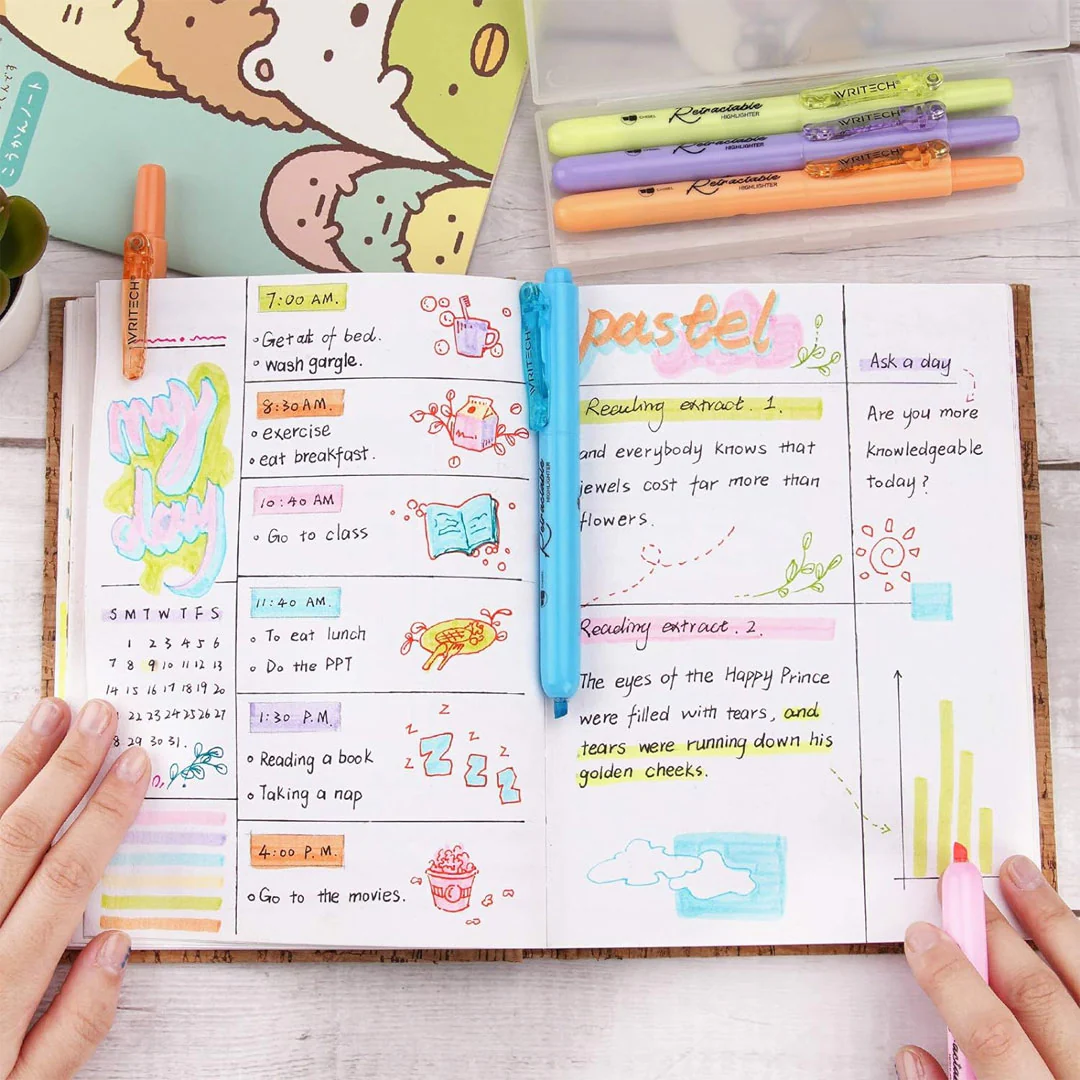 こうかんノート
WRITECH
CHISEL Retractable HIGHLIGHTER
WRITECH
CHISEL Retractable HIGHLIGHTER
WRITECH
CHISEL Retractable HIGHLIGHTER
WRITECH
my
day
S M T W T F S
1 2 3 4 5 6
7 8 9 10 11 12 13
14 15 16 17 18 19 20
22 23 24 25 26 27
29 30 31.
7:00 AM.
Get at of bed.
wash gargle.
8:30 AM.
exercise
eat breakfast.
10:40 AM
Go to class
11:40 AM.
To eat lunch
Do the PPT
1:30 P.M.
Reading a book
Taking a nap
z
z z
Z Z Z
z z
4:00 P.M.
Go to the movies.
WRITECH
Retractable HIGHLIGHTER
pastel
Reading extract. 1.
and everybody knows that
jewels cost far more than
flowers.
Reading extract. 2.
The eyes of the Happy Prince
were filled with tears, and
tears were running down his
golden cheeks.
Ask a day
Are you more
knowledgeable
today?